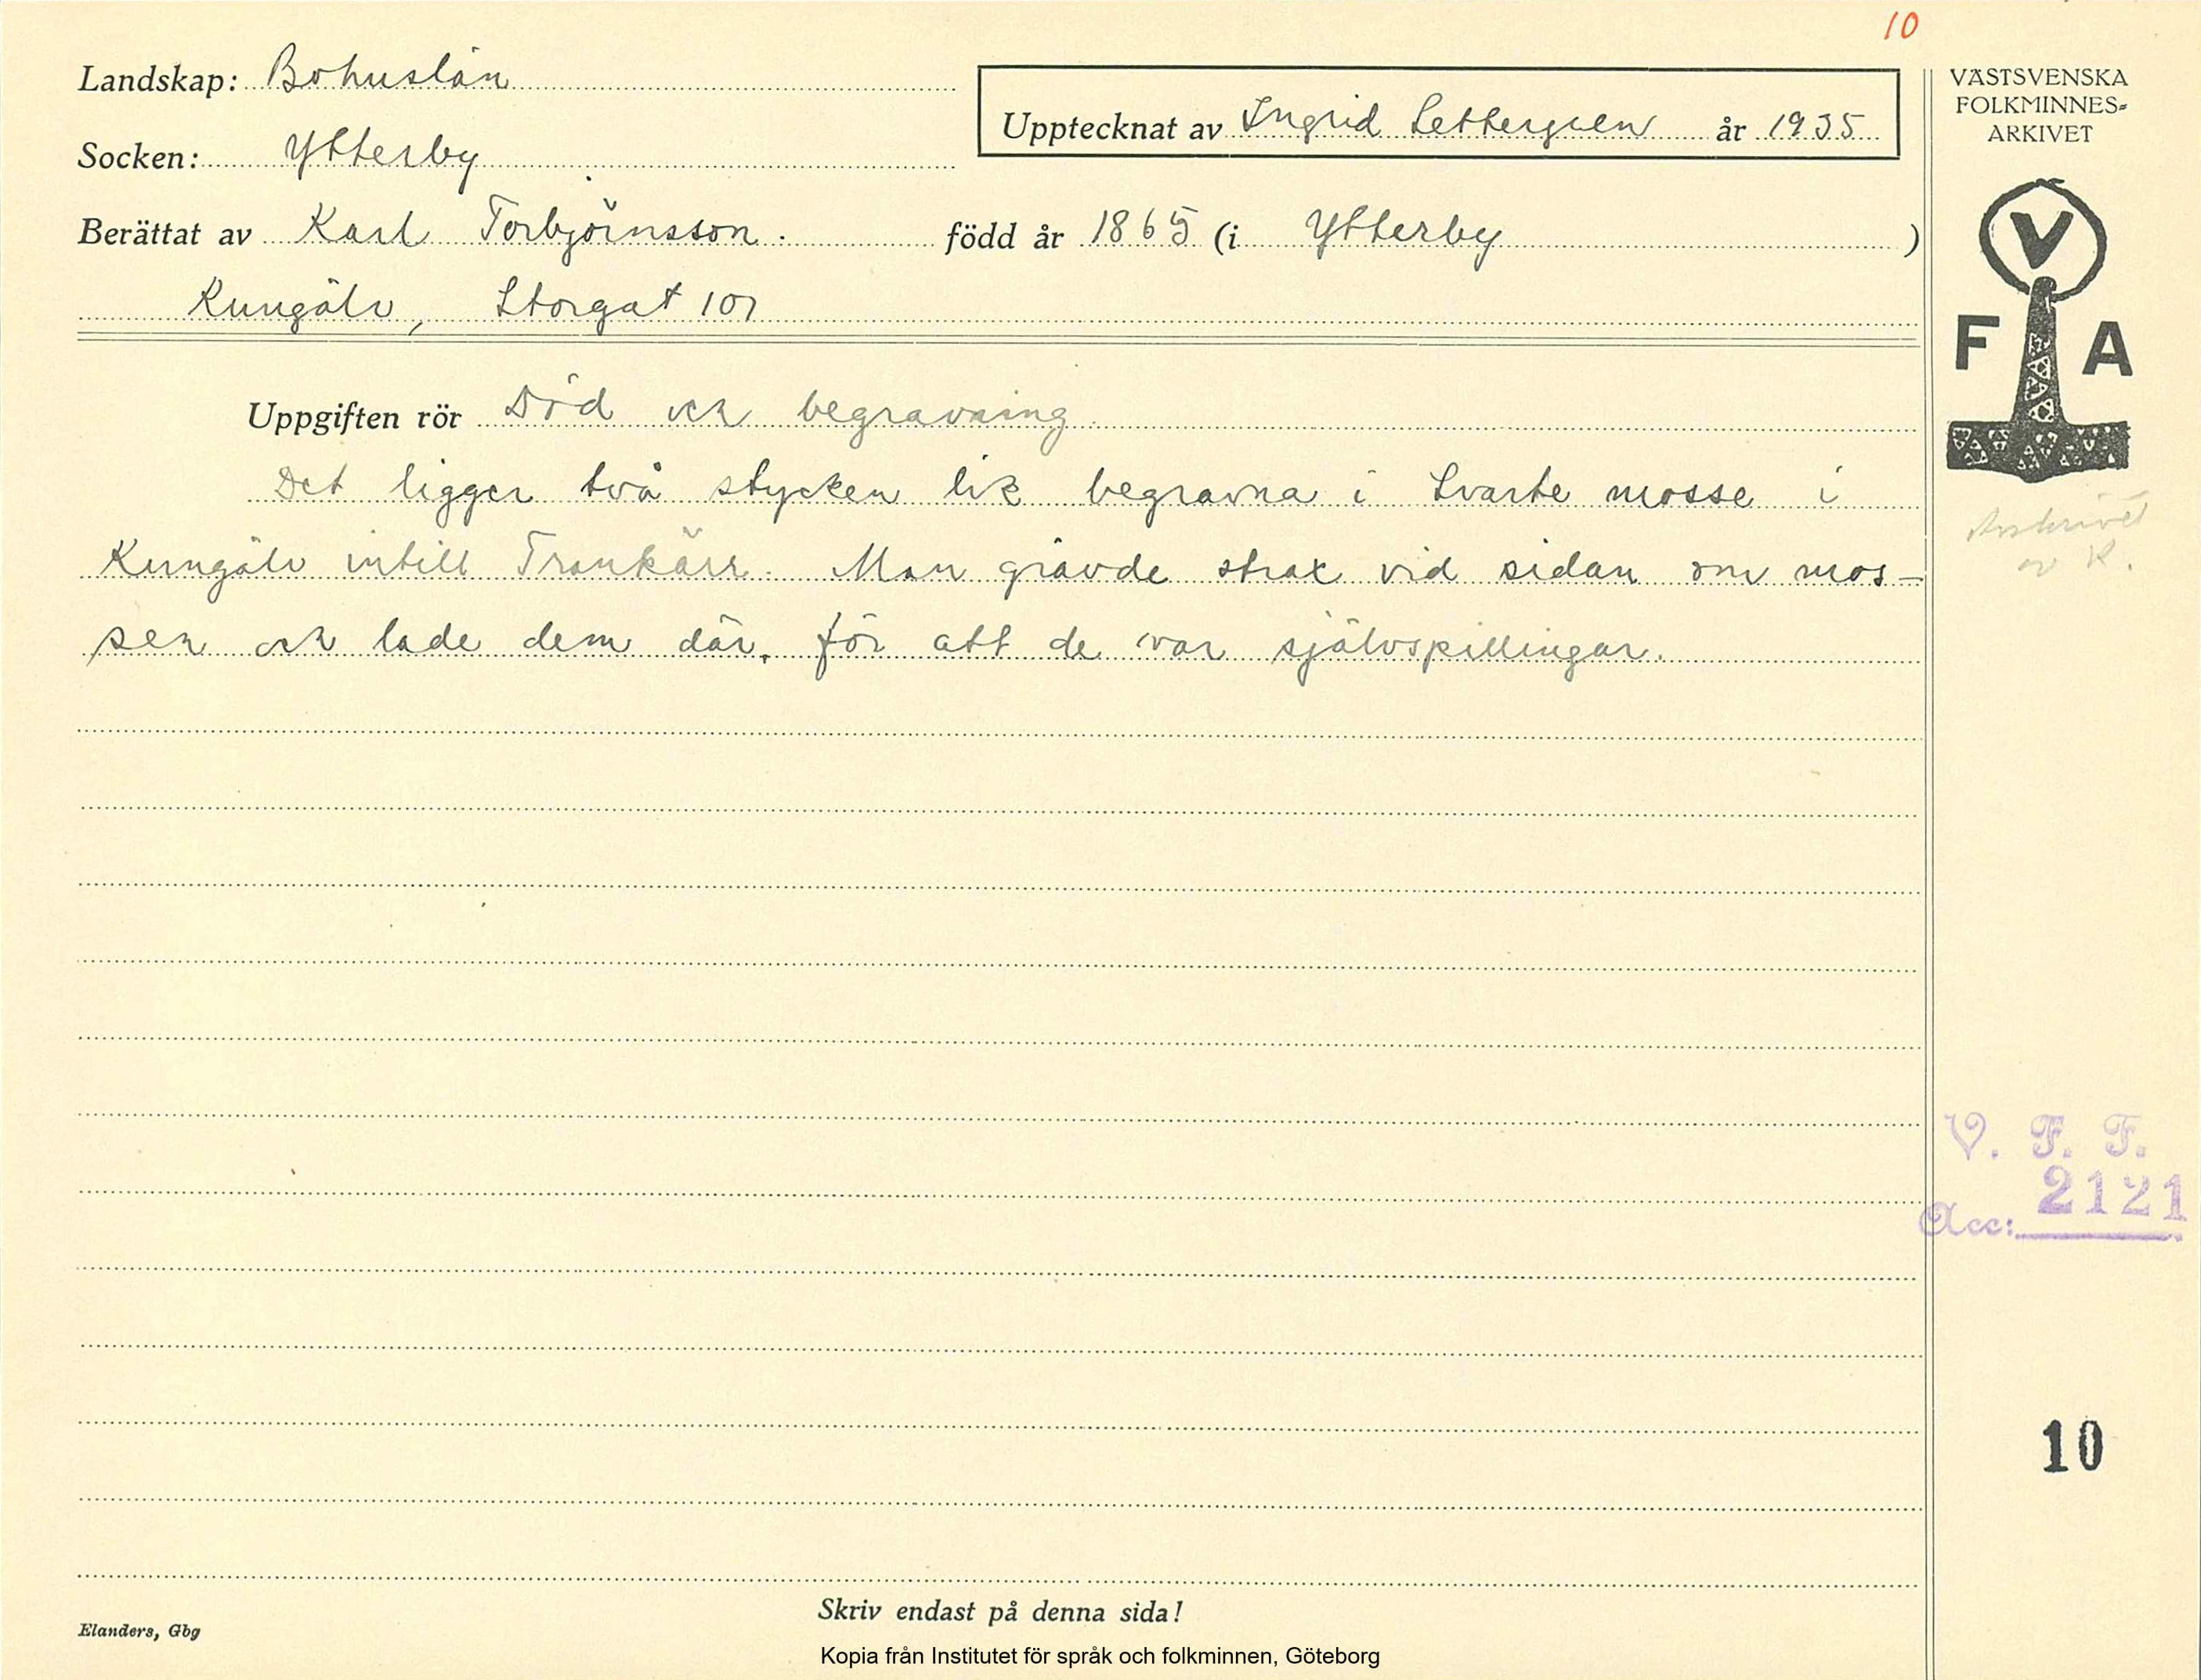 10
Landskap: Bohuslän
Socken: Ytterby
Upptecknat av Ingrid Settergren år 1935
Berättat av Karl Torbjörnsson. född år 1865 (i Ytterby )
Kungälv, Storgat 101
Uppgiften rör Död och begravning.
Det ligger två stycken lik begravna i Svarte mosse i
Kungälv intill Trankärr. Man grävde strax vid sidan om mos-
sen och lade dem där, för att de var självspillingar.
VÄSTSVENSKA
FOLKMINNES=
ARKIVET
V
F A
Avskrivet
av K.
V. F. F.
Acc: 2121
10
Skriv endast på denna sida!
Elanders, Gbg
Kopia från Institutet för språk och folkminnen, Göteborg